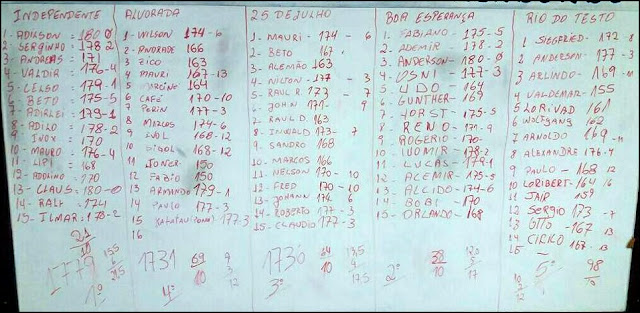 INDEPENDENTE
1- ADILSON = 180-0
2- SERGINHO = 178-2
3- ANDREAS = 171
4- VALDIR = 176-4
5- CELSO = 179-1
6- BETO = 175-5
7- ADIRLEI = 179-1
8- ADILO = 178-2
9- INOX = 170
10- MAURO = 176-4
11- LIPI = 168
12- ADOLINO = 170
13- CLAUS = 180-0
14- RALF = 174
15- ILMAR = 178-2
21
10
1779
1º
ALVORADA
1- WILSON 174-6
2- ANDRADE 166
3 ZICO 163
4 MAURI 167-13
5 164
6 CAFÉ 170-10
7 PERIN 177-3
8 MARCOS 174-6
9 168-12
10 168-12
11 JONES 150
12 FABIO 150
13 ARMANDO 179-1
14 PAULO 177-3
15 177-3
16
1731 69
10
9
3
12
4º
25 DE JULHO
1- MAURI - 174 - 6
2- BETO 167
3- ALEMÃO 163
4- NILTON - 177 - 3
5- RAUL R. 173 - 7
6- JOHN 171 9
7- RAUL D. 163
8- INWALD 173 - 7
9- SANDRO 168
10- MARCOS 166
11- NELSON 170 - 10
12- FRED 170 - 10
13- JOHANN 174 6
14- ROBERTO 177 - 3
15- CLAUDIO 177 - 3
1736 64
10
3º
BOA ESPERANÇA
1- FABIANO - 175-5
2- ADEMIR - 178-2
3- ANDERSON - 180-0
4- OSNI - 177-3
5- UDO - 164
6- GUNTHER - 169
7- HORST - 175-5
8- RENO - 171-9
9- ROGERIO - 170
10- IVOMIR - 178-2
11- LUCAS - 179-1
12- ACEMIR - 175-5
13- ALCIDO - 174-6
14- BOBI - 170
15- ORLANDO - 168
38
10
2º
RIO DO TESTO
1- SIEGFRIED - 172-8
2- ANDERSON - 177-3
3- ARLINDO - 169-11
4- VALDEMAR - 155
5- LORIVAD 161
6- WOLFGANG 162
7- ARNOLDO 169-11
8- ALEXANDRE 176-4
9- PAULO - 168 12
10- LORIBERT 164 16
11- JAIR 159
12- SERGIO 173-7
13- OTTO - 167 13
14- CIRLO - 167-13
15-
5º 98
10